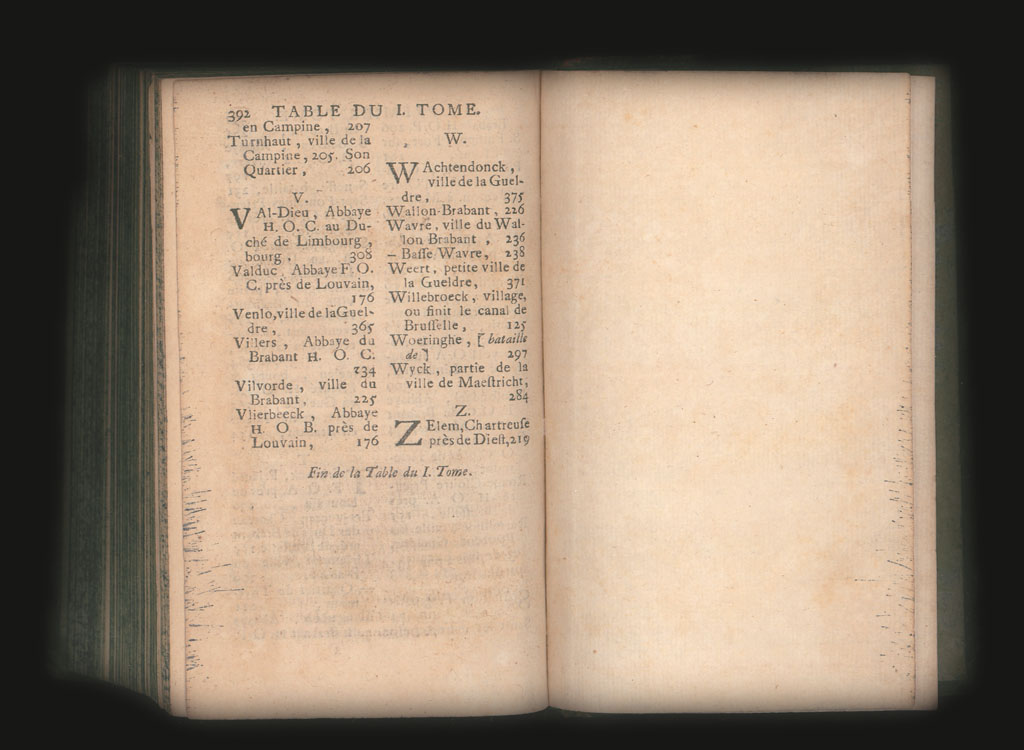 392 TABLE DU I. TOME.
en Campine, 207
Turnhaut, ville de la
Campine, 205. Son
Quartier, 206
V.
VAl-Dieu, Abbaye
H. O. C. au Du-
ché de Limbourg,
bourg, 308
Valduc, Abbaye F. O.
C. près de Louvain,
176
Venlo, ville de la Guel-
dre, 365
Villers, Abbaye du
Brabant H. O. C.
234
Vilvorde, ville du
Brabant, 225
Vlierbeeck, Abbaye
H. O B. près de
Louvain, 176
W.
WAchtendonck,
ville de la Guel-
dre, 375
Wallon-Brabant, 226
Wavre, ville du Wal-
lon Brabant, 236
— Baſſe Wavre, 238
Weert, petite ville de
la Gueldre, 371
Willebroeck, village,
ou finit le canal de
Bruſſelle, 125
Woeringhe, [bataille
de] 297
Wyck, partie de la
ville de Maeſtricht,
284
Z.
ZElem, Chartreuſe
près de Dieſt, 219
Fin de la Table du I. Tome.